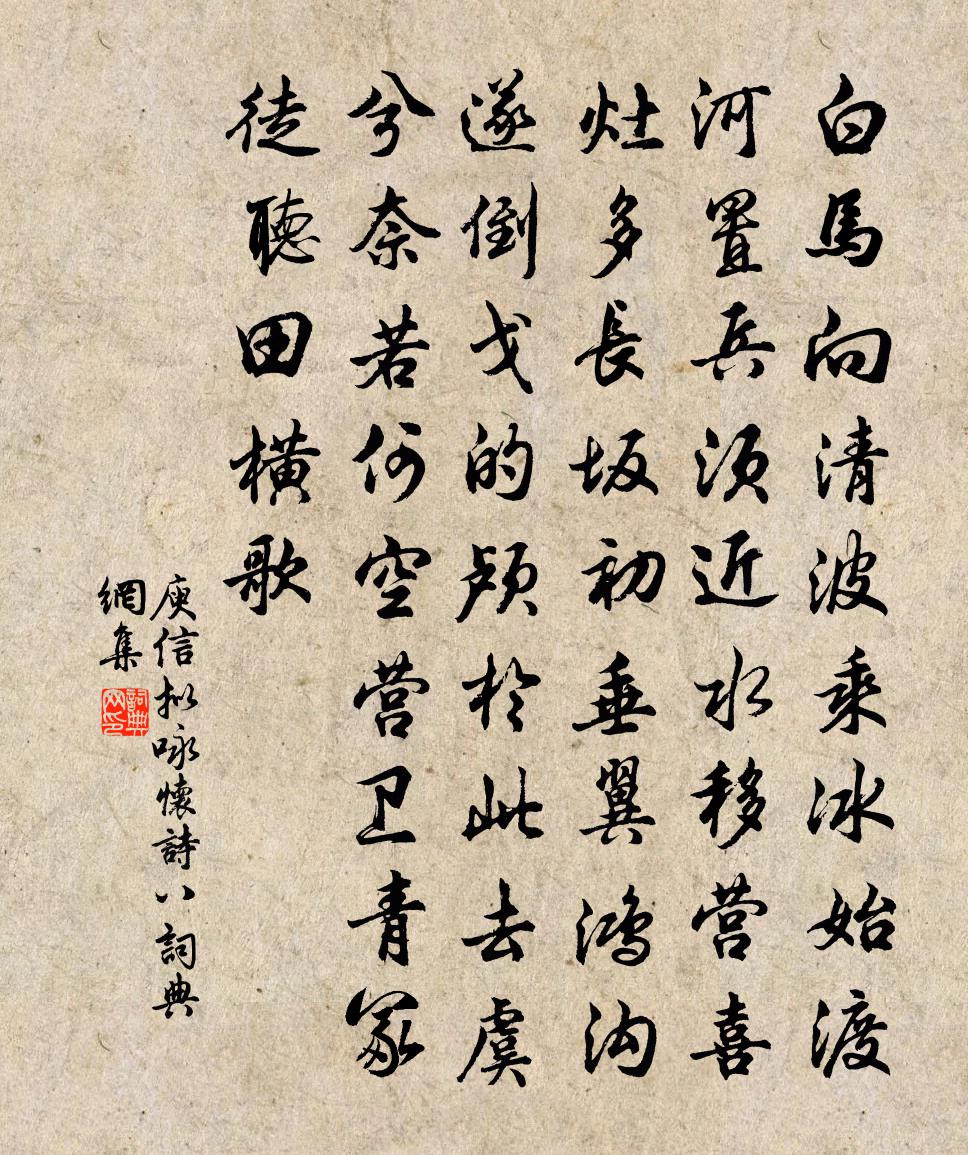 白馬向清波乘冰始渡
河置兵须近水移营喜
灶多長坂初垂翼鸿沟
遂倒戈的颅於此去虞
兮奈若何空营卫青冢
徒聽田横歌
庾信拟咏懷詩八詞典
網集
詞典网印